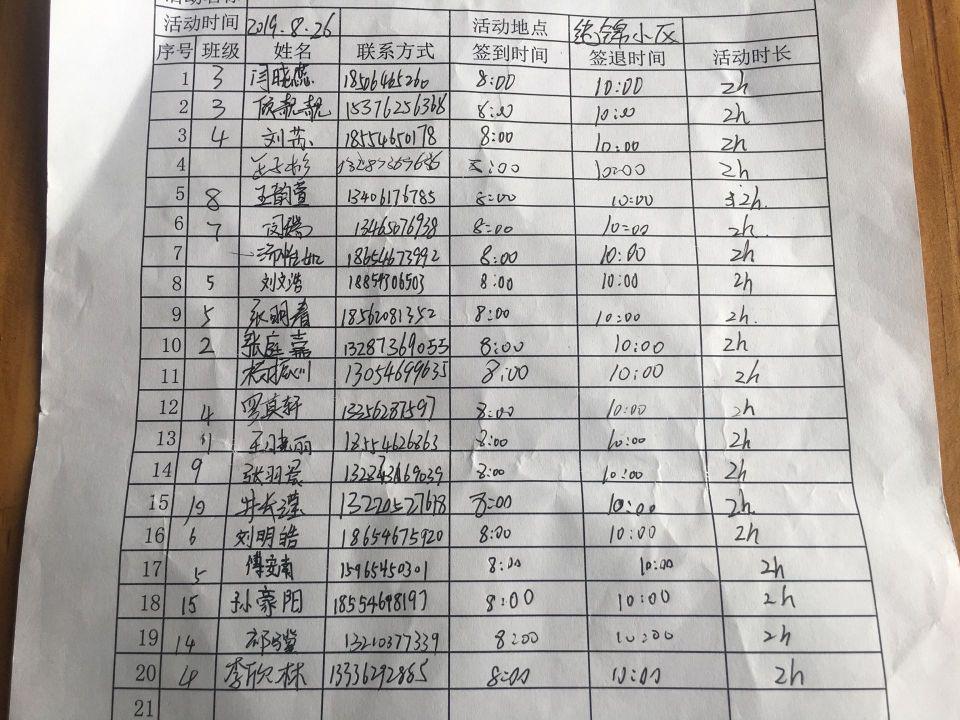 活动时间 2019.8.26 活动地点 绝锦小区
序号 班级 姓名 联系方式 签到时间 签退时间 活动时长
1 3 闫晓燕 18506465260 8:00 10:00 2h
2 3 15376256368 8:00 10:00 2h
3 4 刘芳 18554650178 8:00 10:00 2h
4 13287367656 8:00 10:00 2h
5 8 王韵萱 13406176785 8:00 10:00 2h.
6 7 闵瑞 13465076938 8:00 10:00 2h.
7 18654673992 8:00 10:00 2h
8 5 刘文浩 18854306503 8:00 10:00 2h
9 5 张明春 18562081352 8:00 10:00 2h.
10 2 张庭嘉 13287369055 8:00 10:00 2h
11 杨振川 13054699635 8:00 10:00 2h
12 4 罗真轩 13356287597 8:00 10:00 2h
13 王晓丽 18554626863 8:00 10:00 2h
14 9 张羽晨 8:00 10:00 2h
15 10 13220527618 8:00 10:00 2h.
16 6 刘明皓 18654675920 8:00 10:00 2h
17 5 傅安南 15965450301 8:00 10:00 2h
18 15 孙豪阳 18554698197 8:00 10:00 2h
19 14 13210377339 8:00 10:00 2h
20 4 李欣林 13336292865 8:00 10:00 2h
21